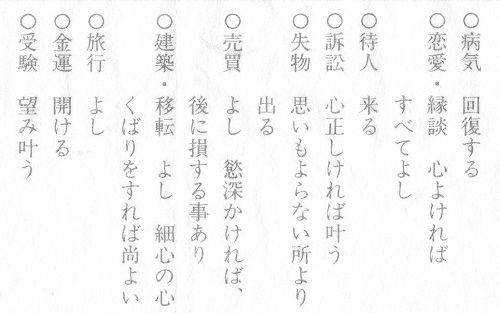 ○病気　回復する
○恋愛・縁談　心よければ
すべてよし
○待人　来る
○訴訟　心正しければ叶う
○失物　思いもよらない所より
出る
○売買　よし　慾深かければ、
後に損する事あり
○建築・移転　よし　細心の心
くばりをすれば尚よい
○旅行　よし
○金運　開ける
○受験　望み叶う